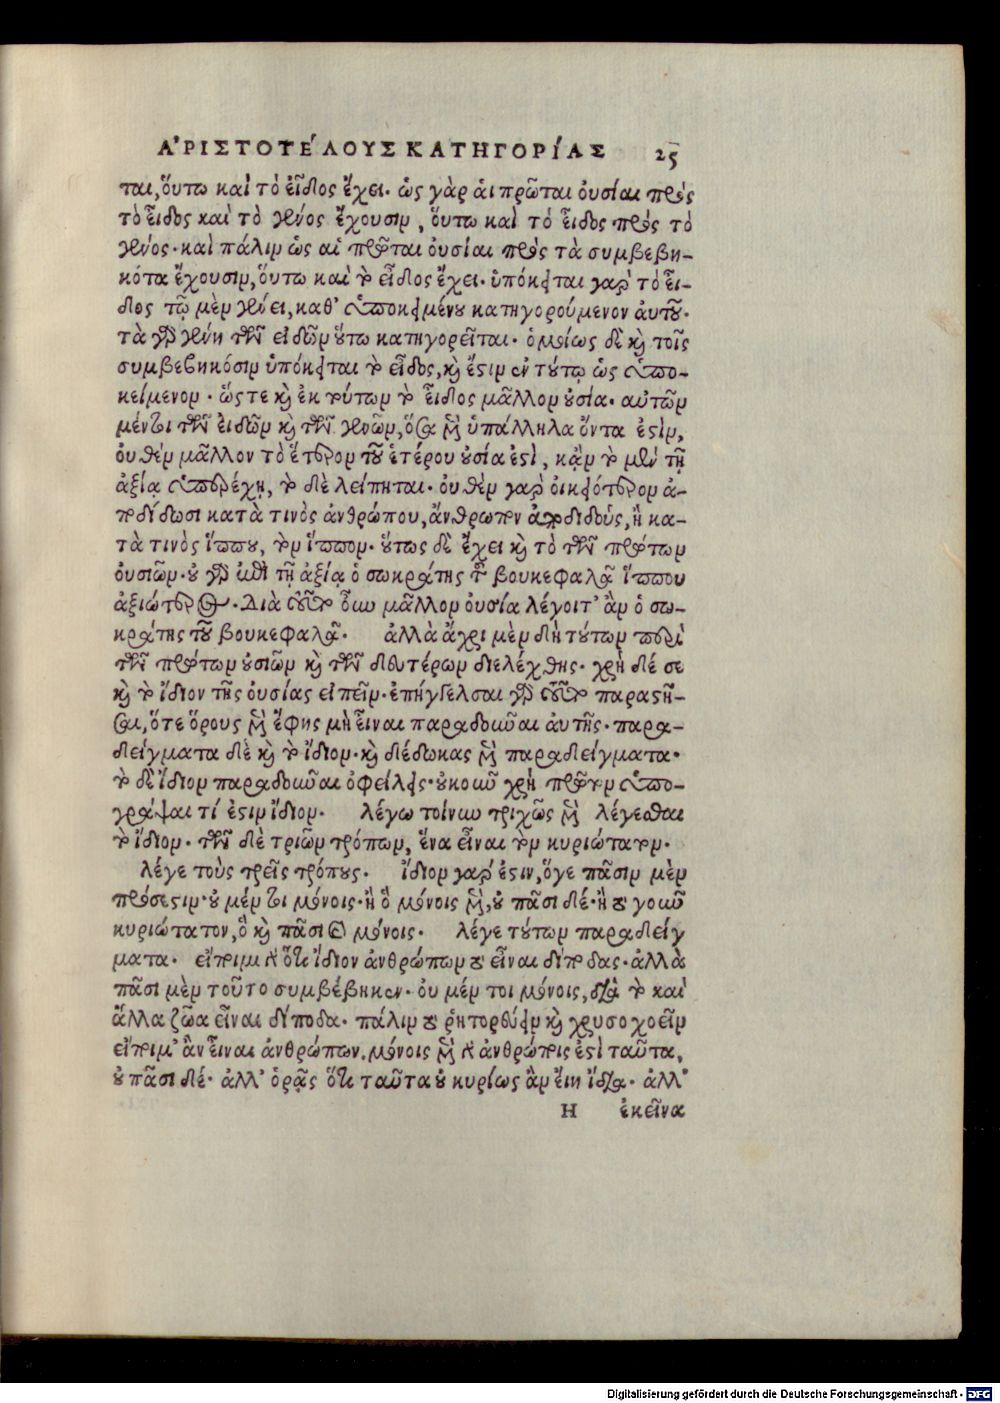 ΑʼΡΙΣΤΟΤΕ´ΛΟΥΣ ΚΑΤΗΓΟΡΙ´ΑΣ 25
ται, ὅυτω καὶ τὸ εἶδος ἔχει· ὡς γὰρ ἁι πρῶται ὀυσίαι πρὸς
τὸ εἶδος καὶ τὸ γένος ἔχουσιν, ὅυτω καὶ τὸ εἶδος πρὸς τὸ
γένος· καὶ πάλιν ὡς αἱ πρῶται ὀυσίαι πρὸς τὰ συμβεβη-
κότα ἔχουσιν, ὅυτω καὶ τὸ εἶδος ἔχει· ὑπόκειται γαρ τὸ εἶ-
δος τῷ μὲν γένει, καθ' ὑποκειμένου κατηγορούμενον ἀυτοῦ·
τὰ γὰρ γένη τῶν εἰδῶν ὅυτω κατηγορεῖται· ὁμοίως δὲ καὶ τοῖς
συμβεβηκόσιν ὑπόκειται τὸ εἶδος, καὶ ἔστιν ἐν τούτῳ ὡς ὑπο-
κείμενον· ὥς τε καὶ ἐκ τούτων τὸ εἶδος μᾶλλον ουσία· αυτῶν
μέντοι τῶν εἰδῶν καὶ τῶν γενῶν, ὅσα μὴ ὑπάλληλα ὄντα ἐστὶν,
ὀυθὲν μᾶλλον τὸ ἕτερον τοῦ ἑτέρου ουσία ἐστὶ, κἂν τὸ μὲν τῇ
ἀξίᾳ ὑπερέχῃ, τὸ δὲ λείπηται· ὀυθὲν γαρ ὀικειότερον ἀ-
ποδίδωσι κατὰ τινὸς ἀνθρώπου, ἄνθρωπον ἀποδιδοὺς, ἢ κα-
τὰ τινὸς ἵππου, τὸν ἵππον· ὅυτως δὲ ἔχει καὶ τὸ τῶν πρώτων
ὀυσιῶν· ὀυ γὰρ ἐπεὶ τῇ ἀξίᾳ ὁ σωκράτης τοῦ βουκεφαλᾶ ἵππου
ἀξιώτερος. Διὰ τοῦτο ὅσῳ μᾶλλον ὀυσία λέγοιτ' ἂν ὁ σω-
κράτης τοῦ βουκεφαλᾶ. ἀλλὰ ἄχρι μὲν δὴ τούτων περὶ
τῶν πρώτων ουσιῶν καὶ τῶν δευτέρων διελέχθης· χρὴ δέ σε
καὶ τὸ ἴδιον τῆς ὀυσίας εἰπεῖν· ἐπήγγελσαι γὰρ τοῦτο παραστῆ-
σαι, ὅτε ὅρους μὴ ἔφης μὴ εἶναι παραδοῦναι ἀυτῆς· παρα-
δείγματα δὲ καὶ τὸ ἴδιον· καὶ δέδωκας μὲν παραδείγματα·
τὸ δὲ ἴδιον παραδοῦναι ὀφείλεις· ὀυκοῦν χρὴ πρῶτον ὑπο-
γράψαι τί ἐστιν ἴδιον. λέγω τοίνυν τριχῶς μὲν λέγεσθαι
τὸ ἴδιον· τῶν δὲ τριῶν τρόπων, ἕνα εἶναι τὸν κυριώτατον.
λέγε τοὺς τρεῖς τρόπους. ἴδιον γαρ ἐστιν, ὅγε πᾶσιν μὲν
πρόσεστιν· ὀυ μέν τοι μόνοις· ἢ ὃ μόνοις μὲν, ὀυ πᾶσι δέ· ἢ τὸ γοῦν
κυριώτατον, ὃ καὶ πᾶσι καὶ μόνοις. λέγε τούτων παραδείγ
ματα. εἴποιμι ἂν ὅτι ἴδιον ἀνθρώπων τὸ εἶναι δίποδας· ἀλλὰ
πᾶσι μὲν τοῦτο συμβέβηκεν· ὀυ μέν τοι μόνοις, διὰ τὸ καὶ
ἄλλα ζῶα εἶναι δίποδα· πάλιν τὸ ῥητορεύειν καὶ χρυσοχοεῖν
εἴποιμ' ἂν εἶναι ἀνθρώπων. μόνοις μὲν γὰρ ἀνθρώποις ἐστὶ ταῦτα,
ὀυ πᾶσι δέ· ἀλλ' ὁρᾷς ὅτι ταῦτα ὀυ κυρίως ἂν εἴη ἴδια· ἀλλ'
Η ἐκεῖνα
Digitalisierung gefördert durch die Deutsche Forschungsgemeinschaft - DFG